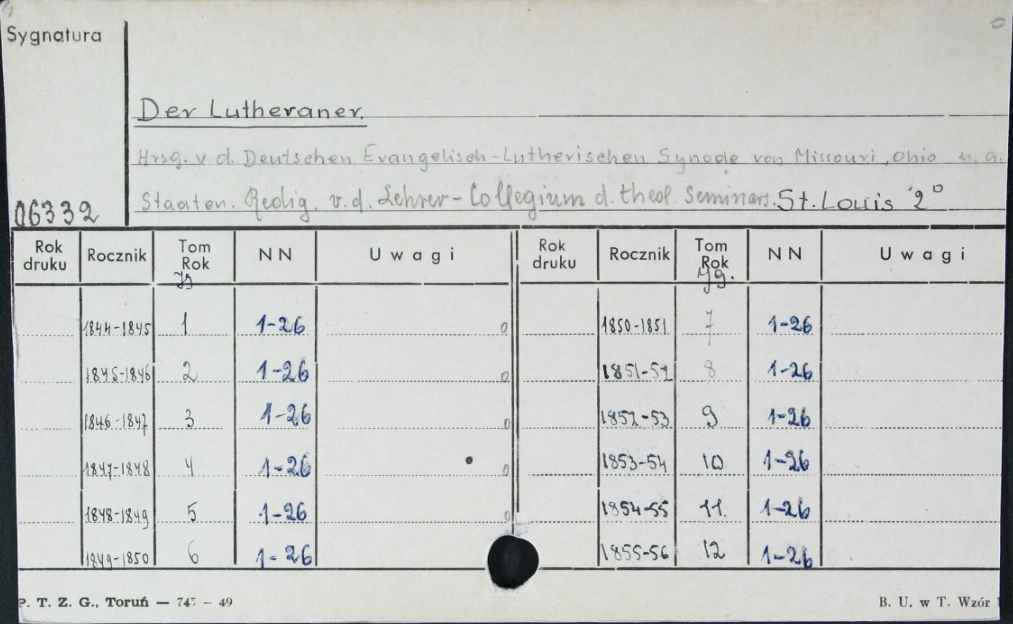 Sygnatura
Der Lutheraner.
Hrsg. v d. Deutschen Evangelisch-Lutherischen Synode von Missouri, Ohio u. a.
06332 Staaten. Redig. v. d. Lehrer-Collegium d. theol. Seminars. St. Louis 2°
Rok druku Rocznik Tom Rok Jg NN Uwagi Rok druku Rocznik Tom Rok Jg. NN Uwagi
1844-1845 1 1-26 0 1850-1851 7 1-26
1845-1846 2 1-26 0 1851-52 8 1-26
1846-1847 3 1-26 0 1852-53 9 1-26
1847-1848 4 1-26 0 1853-54 10 1-26
1848-1849 5 1-26 0 1854-55 11. 1-26
1849-1850 6 1-26 1855-56 12 1-26
P. T. Z. G., Toruń — 745 – 49 B. U. w T. Wzór